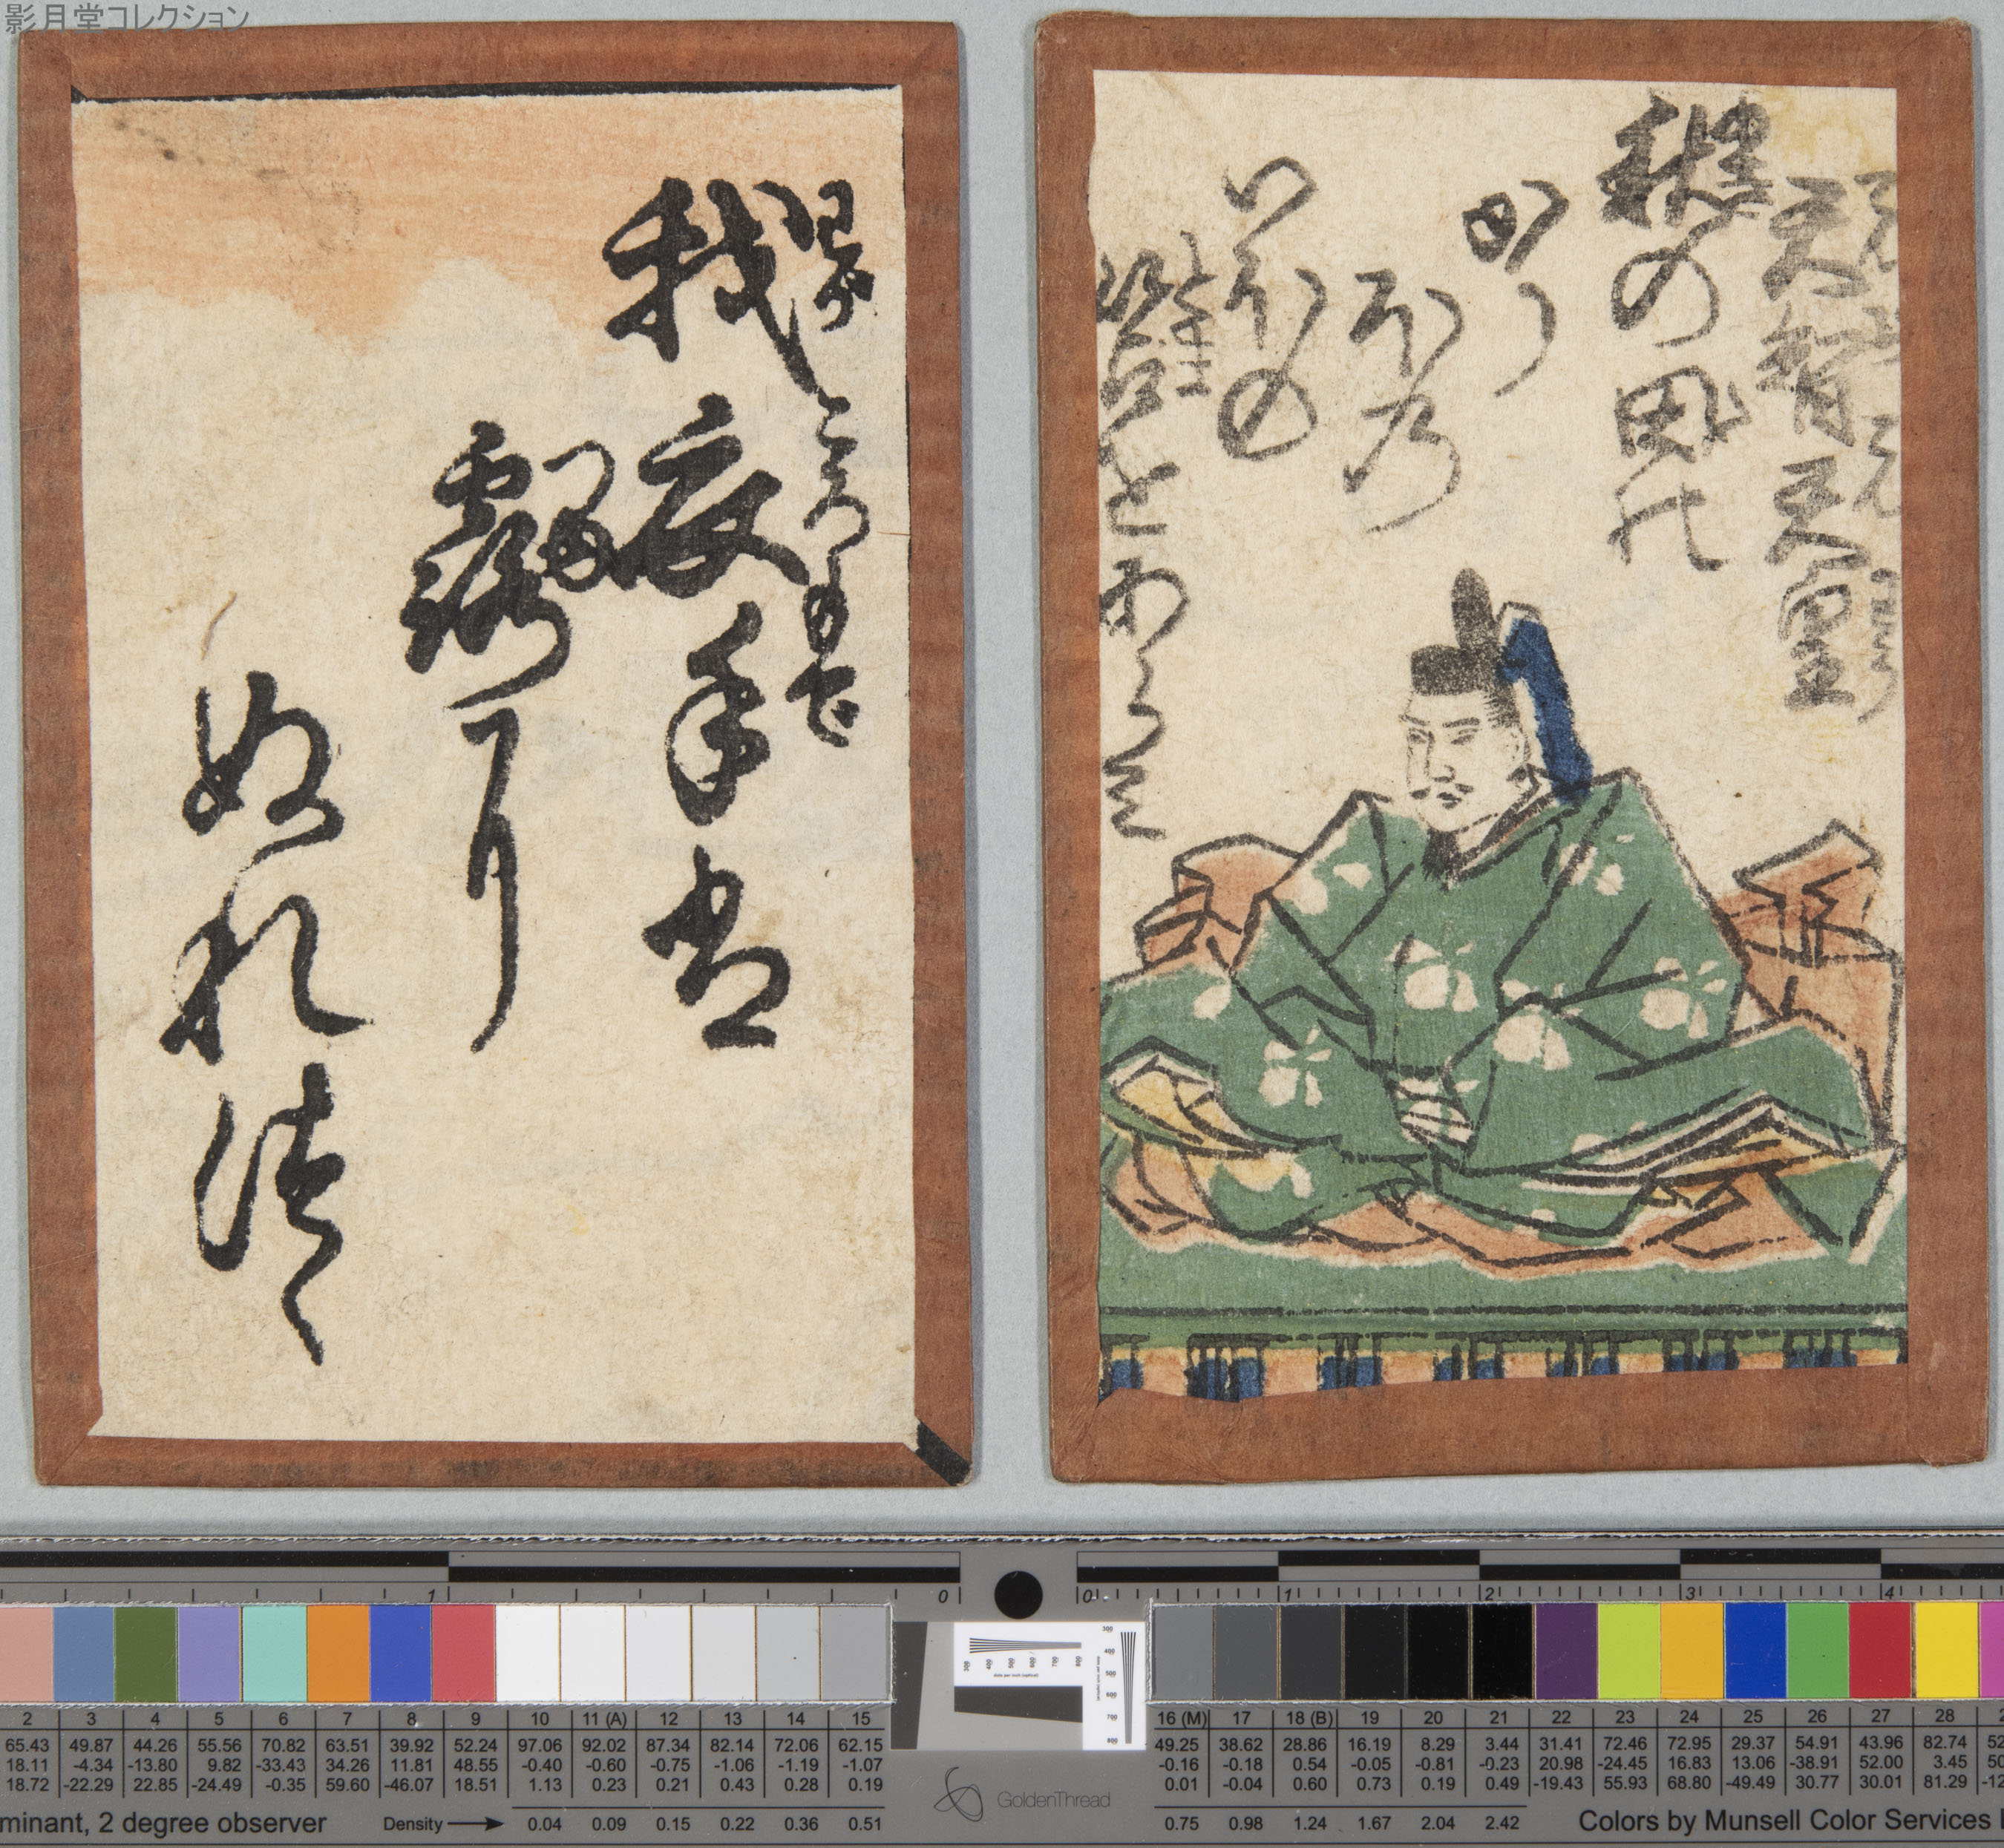 影月堂コレクション
天智天皇
秋の田の
かり
ほの
いほの
苫をあらみ
我衣手は
露
つゆ
に
ぬれつゝ
1 0
0 1 2 3 4
300 400 500 600 700 800
2 3 4 5 6 7 8 9 10 11 (A) 12 13 14 15
65.43 49.87 44.26 55.56 70.82 63.51 39.92 52.24 97.06 92.02 87.34 82.14 72.06 62.15
18.11 -4.34 -13.80 9.82 -33.43 34.26 11.81 48.55 -0.40 -0.60 -0.75 -1.06 -1.19 -1.07
18.72 -22.29 22.85 -24.49 -0.35 59.60 -46.07 18.51 1.13 0.23 0.21 0.43 0.28 0.19
minant, 2 degree observer Density 0.04 0.09 0.15 0.22 0.36 0.51
GoldenThread
16 (M) 17 18 (B) 19 20 21 22 23 24 25 26 27 28
49.25 38.62 28.86 16.19 8.29 3.44 31.41 72.46 72.95 29.37 54.91 43.96 82.74
-0.16 -0.18 0.54 -0.05 -0.81 -0.23 20.98 -24.45 16.83 13.06 -38.91 52.00 3.45
0.01 -0.04 0.60 0.73 0.19 0.49 -19.43 55.93 68.80 -49.49 30.77 30.01 81.29
0.75 0.98 1.24 1.67 2.04 2.42 Colors by Munsell Color Services